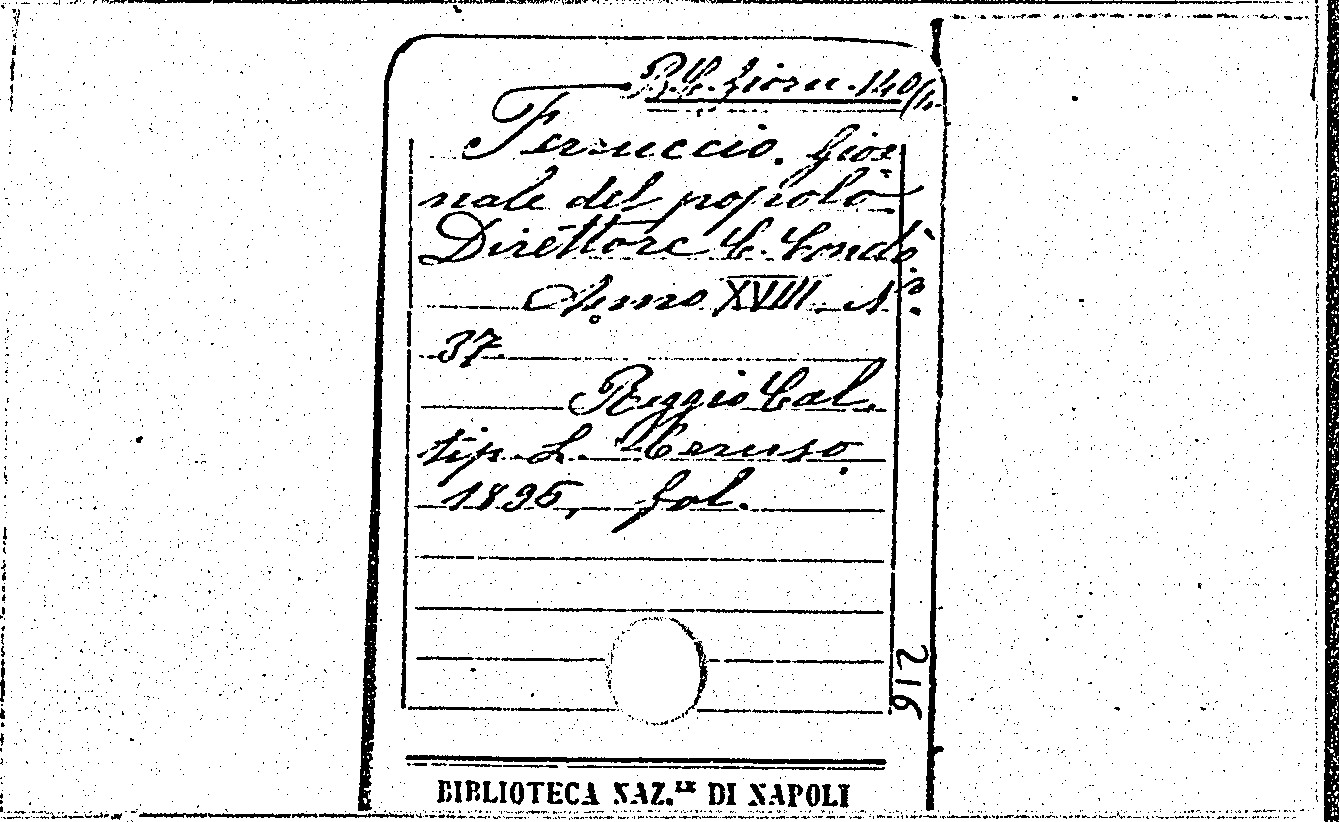 B. C. Giorn. 140/1.
Ferruccio. Gior
nale del popolo
Direttore C. Condò
Anno XVIII N.°
37
Reggio Cal.
tip. L. Ceruso
1895, fol.
216
BIBLIOTECA NAZ.LE DI NAPOLI